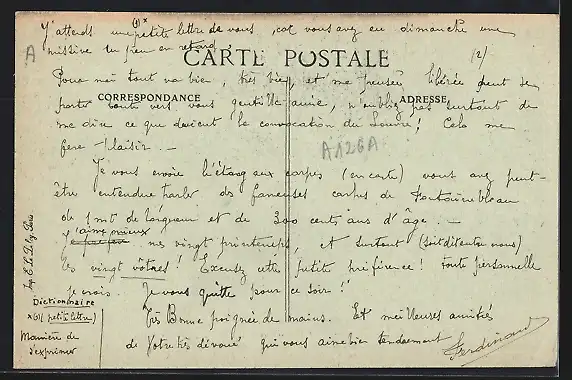 J'attends une petite lettre de vous, car vous avez eu dimanche une
(1) x
missive un peu en retard.
(2)
A
CARTE POSTALE
Pour moi tout va bien, très bien, et ma pensée libérée peut se
CORRESPONDANCE
ADRESSE
porter toute vers vous gentille amie, n'oubliez pas surtout de
me dire ce que devient la convocation du Louvre; Cela me
fera plaisir. —
A126A
Je vous envoie l'étang aux carpes (en carte) vous avez peut-
être entendue parler des fameuses carpes de Fontainebleau
de 1 mt de longueur et de 300 cents ans d'âge. —
J'aime mieux
mes vingt printemps, et surtout (soit dit entre nous)
les vingt vôtres! Excusez cette petite préférence! toute personnelle
je crois. Je vous quitte pour ce soir!
Très Bonne poignée de mains. Et meilleures amitiés
de Votre très dévoué qui vous aime bien tendrement
Ferdinand
Dictionnaire
x (1) (petite lettre)
Manière de
s'exprimer
Imp. E. Le Deley, Paris